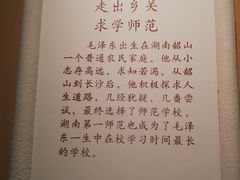 走出乡关
求学师范
毛泽东出生在湖南韶山
一个普通农民家庭。他从小
志存高远，求知若渴。从韶
山到长沙后，他积极探求人
生道路，几经犹疑，几番尝
试，最终选择了师范学校。
湖南第一师范也成为了毛泽
东一生中在校学习时间最长
的学校。